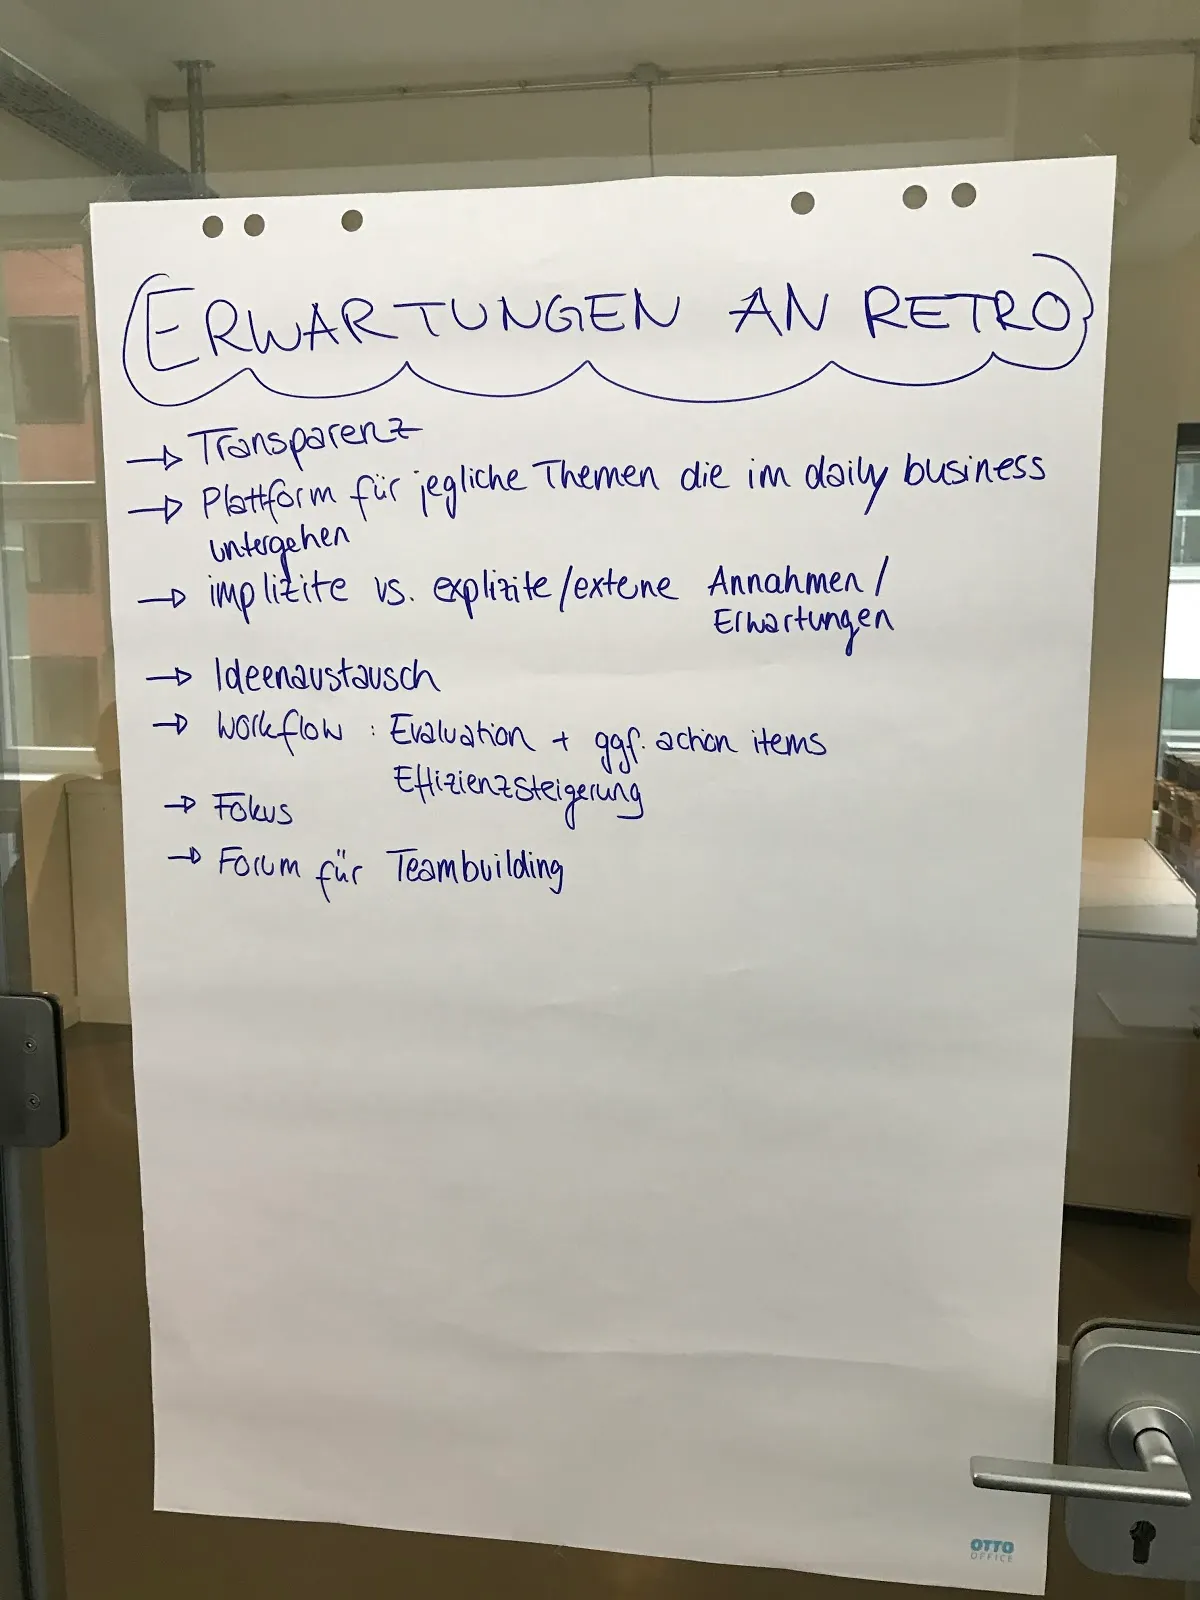 ERWARTUNGEN AN RETRO
→ Transparenz
→ Plattform für jegliche Themen die im daily business
untergehen
→ implizite vs. explizite/extene Annahmen/
Erwartungen
→ Ideenaustausch
→ Workflow : Evaluation + ggf. action items
Effizienzsteigerung
→ Fokus
→ Forum für Teambuilding
OTTO
OFFICE